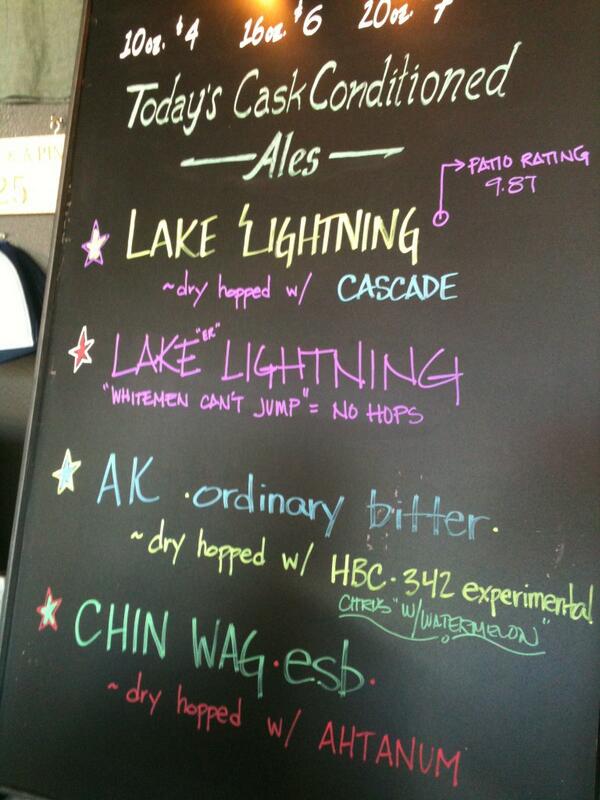 10oz. $4 16oz. $6 20oz. 7
Today's Cask Conditioned
Ales
PATIO RATING
9.87
LAKE LIGHTNING
~dry hopped w/ CASCADE
LAKE "ER" LIGHTNING
"WHITEMEN CAN'T JUMP" = NO HOPS
AK · ordinary bitter.
~dry hopped w/ HBC-342 experimental
"W/WATERMELON"
CHIN WAG · esb.
~dry hopped w/ AHTANUM
25